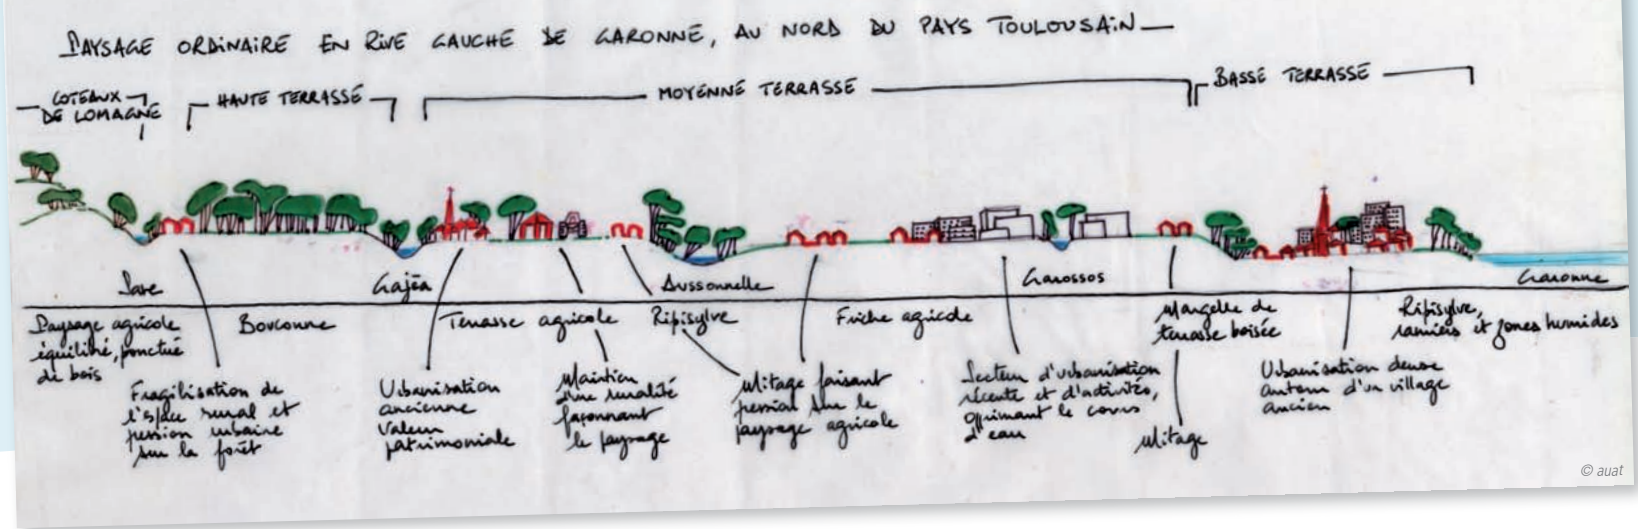 PAYSAGE ORDINAIRE EN RIVE GAUCHE DE GARONNE, AU NORD DU PAYS TOULOUSAIN
COTEAUX
DE LOMAGNE
HAUTE TERRASSE
MOYENNE TERRASSE
BASSE TERRASSE
Save
Gajéa
Aussonnelle
Garossos
Garonne
Paysage agricole
équilibré, ponctué
de bois
Bouconne
Terrasse agricole
Ripisylve
Friche agricole
Margelle de
terrasse boisée
Ripisylve,
ramiers et zones humides
Fragilisation de
l'espace rural et
pression urbaine
sur la forêt
Urbanisation
ancienne
Valeur
patrimoniale
Maintien
d'une ruralité
façonnant
le paysage
Mitage faisant
pression sur le
paysage agricole
Secteur d'urbanisation
récente et d'activités,
opprimant le cours
d'eau
Mitage
Urbanisation dense
autour d'un village
ancien
© auat